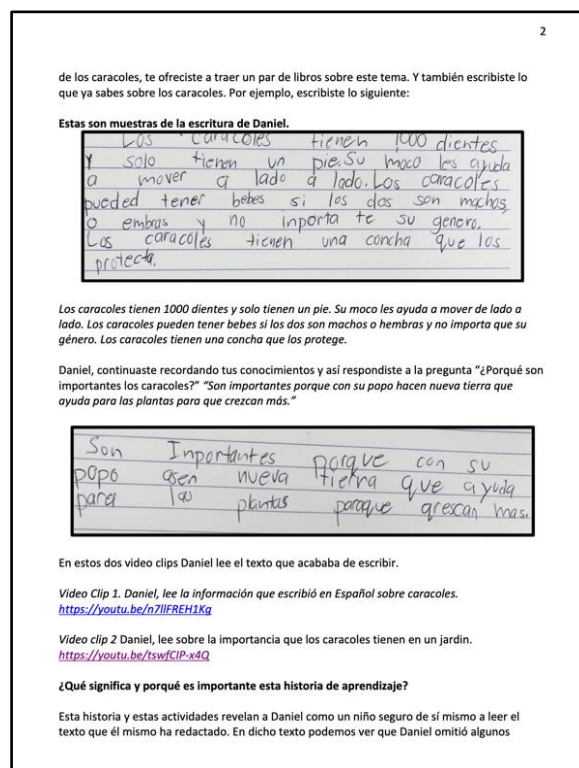 2
de los caracoles, te ofreciste a traer un par de libros sobre este tema. Y también escribiste lo
que ya sabes sobre los caracoles. Por ejemplo, escribiste lo siguiente:
Estas son muestras de la escritura de Daniel.
Los caracoles tienen 1000 dientes
Y solo tienen un pie. Su moco les ayuda
a mover a lado a lado. Los caracoles
pueded tener bebes si los dos son machos,
o embras y no inporta te su genero.
Las caracoles tienen una concha que los
protecta.
Los caracoles tienen 1000 dientes y solo tienen un pie. Su moco les ayuda a mover de lado a
lado. Los caracoles pueden tener bebes si los dos son machos o hembras y no importa que su
género. Los caracoles tienen una concha que los protege.
Daniel, continuaste recordando tus conocimientos y así respondiste a la pregunta “¿Porqué son
importantes los caracoles?” “Son importantes porque con su popo hacen nueva tierra que
ayuda para las plantas para que crezcan más.”
Son Inportantes porque con su
popo asen nueva tierra que ayuda
para las plantas paraque grescan mas.
En estos dos video clips Daniel lee el texto que acababa de escribir.
Video Clip 1. Daniel, lee la información que escribió en Español sobre caracoles.
https://youtu.be/n7llFREH1Kg
Video clip 2 Daniel, lee sobre la importancia que los caracoles tienen en un jardin.
https://youtu.be/tswfCIP-x4Q
¿Qué significa y porqué es importante esta historia de aprendizaje?
Esta historia y estas actividades revelan a Daniel como un niño seguro de sí mismo a leer el
texto que él mismo ha redactado. En dicho texto podemos ver que Daniel omitió algunos